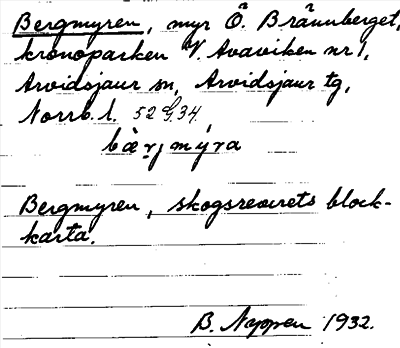 Bergmyren, myr Ö. Brännberget,
kronoparken V. Avaviken nr 1,
Arvidsjaur sn, Arvidsjaur tg,
Norrb. l. 52 G. 34.
bæ̀rjmýra
Bergmyren, skogsrevirets block-
karta.
B. Nyman 1932.